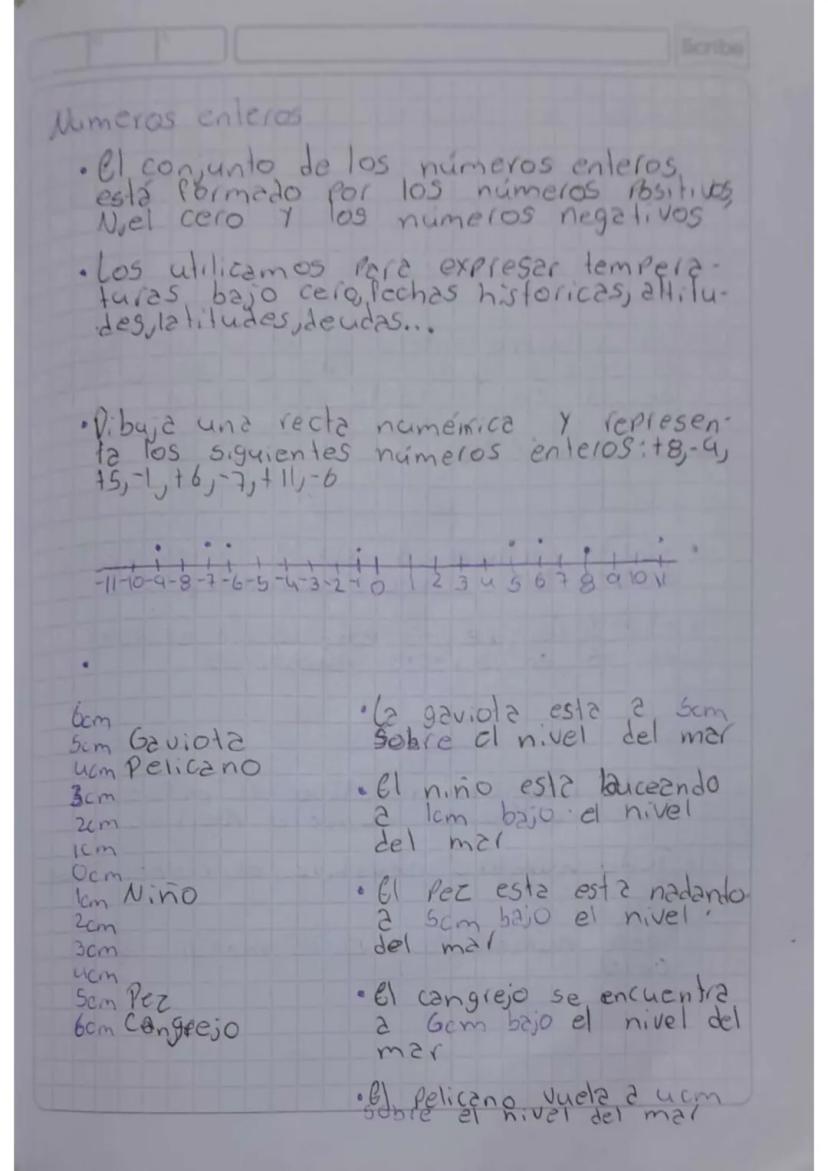 Scribe
Numeros enteros
• El conjunto de los números enteros,
está formado por los números positivos,
N, el cero y los números negativos
• Los utilicamos para expresar tempera-
turas bajo cero, fechas historicas, altitu-
des, latitudes, deudas...
• Dibuja una recta numérica y represen-
ta los siguientes números enteros: +8, -9,
+5, -1, +6, -7, +11, -6
-11 -10 -9 -8 -7 -6 -5 -4 -3 -2 -1 0 1 2 3 4 5 6 7 8 9 10 11
6cm
5cm Gaviota
4cm Pelicano
3cm
2cm
1cm
0cm
1cm Niño
2cm
3cm
4cm
5cm Pez
6cm Cangrejo
• La gaviota esta a 5cm
sobre el nivel del mar
• El niño esta buceando
a 1cm bajo el nivel
del mar
• El Pez esta esta nadando
a 5cm bajo el nivel
del mar
• El cangrejo se encuentra
a 6cm bajo el nivel del
mar
• El pelicano vuela a 4cm
sobre el nivel del mar